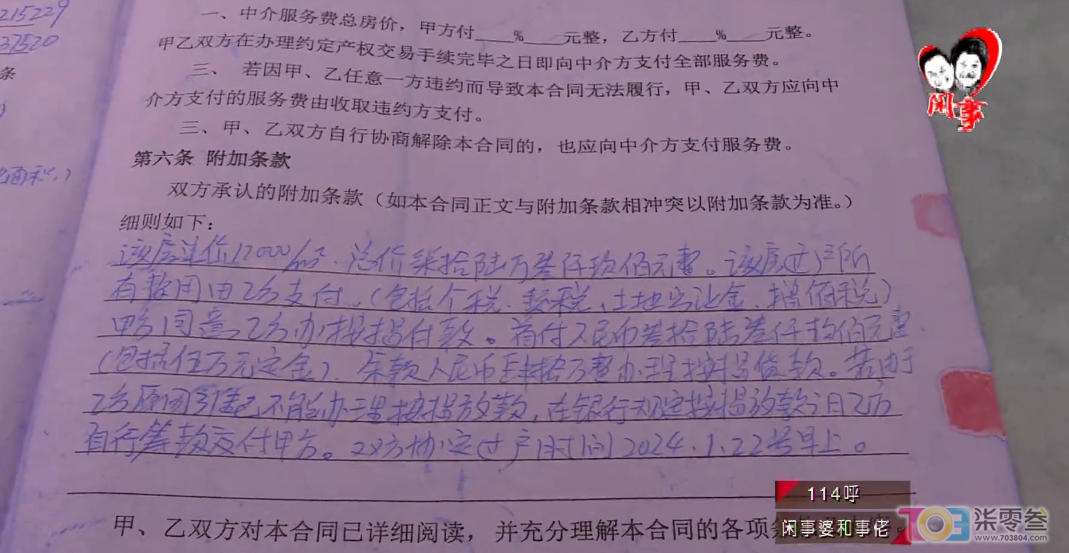 215229
37520
条
一、中介服务费总房价，甲方付____%____元整，乙方付____%____元整。
甲乙双方在办理约定产权交易手续完毕之日即向中介方支付全部服务费。
三、 若因甲、乙任意一方违约而导致本合同无法履行，甲、乙双方应向中
介方支付的服务费由收取违约方支付。
三、甲、乙双方自行协商解除本合同的，也应向中介方支付服务费。
第六条 附加条款
双方承认的附加条款（如本合同正文与附加条款相冲突以附加条款为准。）
细则如下：
该房单价12000/㎡，总价柒拾陆万叁仟玖佰元整。该房过户所
有费用由乙方支付，（包括个税、契税、土地出让金、增值税）
甲方同意乙方办按揭付款。首付人民币叁拾陆万叁仟玖佰元整
（包括伍万元定金），余款人民币肆拾万整办理按揭贷款。若由于
乙方原因引起不能办理按揭放款，在银行规定按揭放款当日乙方
自行筹款交付甲方。双方协定过户时间2024.1.22号早上。
甲、乙双方对本合同已详细阅读，并充分理解本合同的各项条
闲事
114呼
闲事婆和事佬
703 柒零叁
www.703804.com